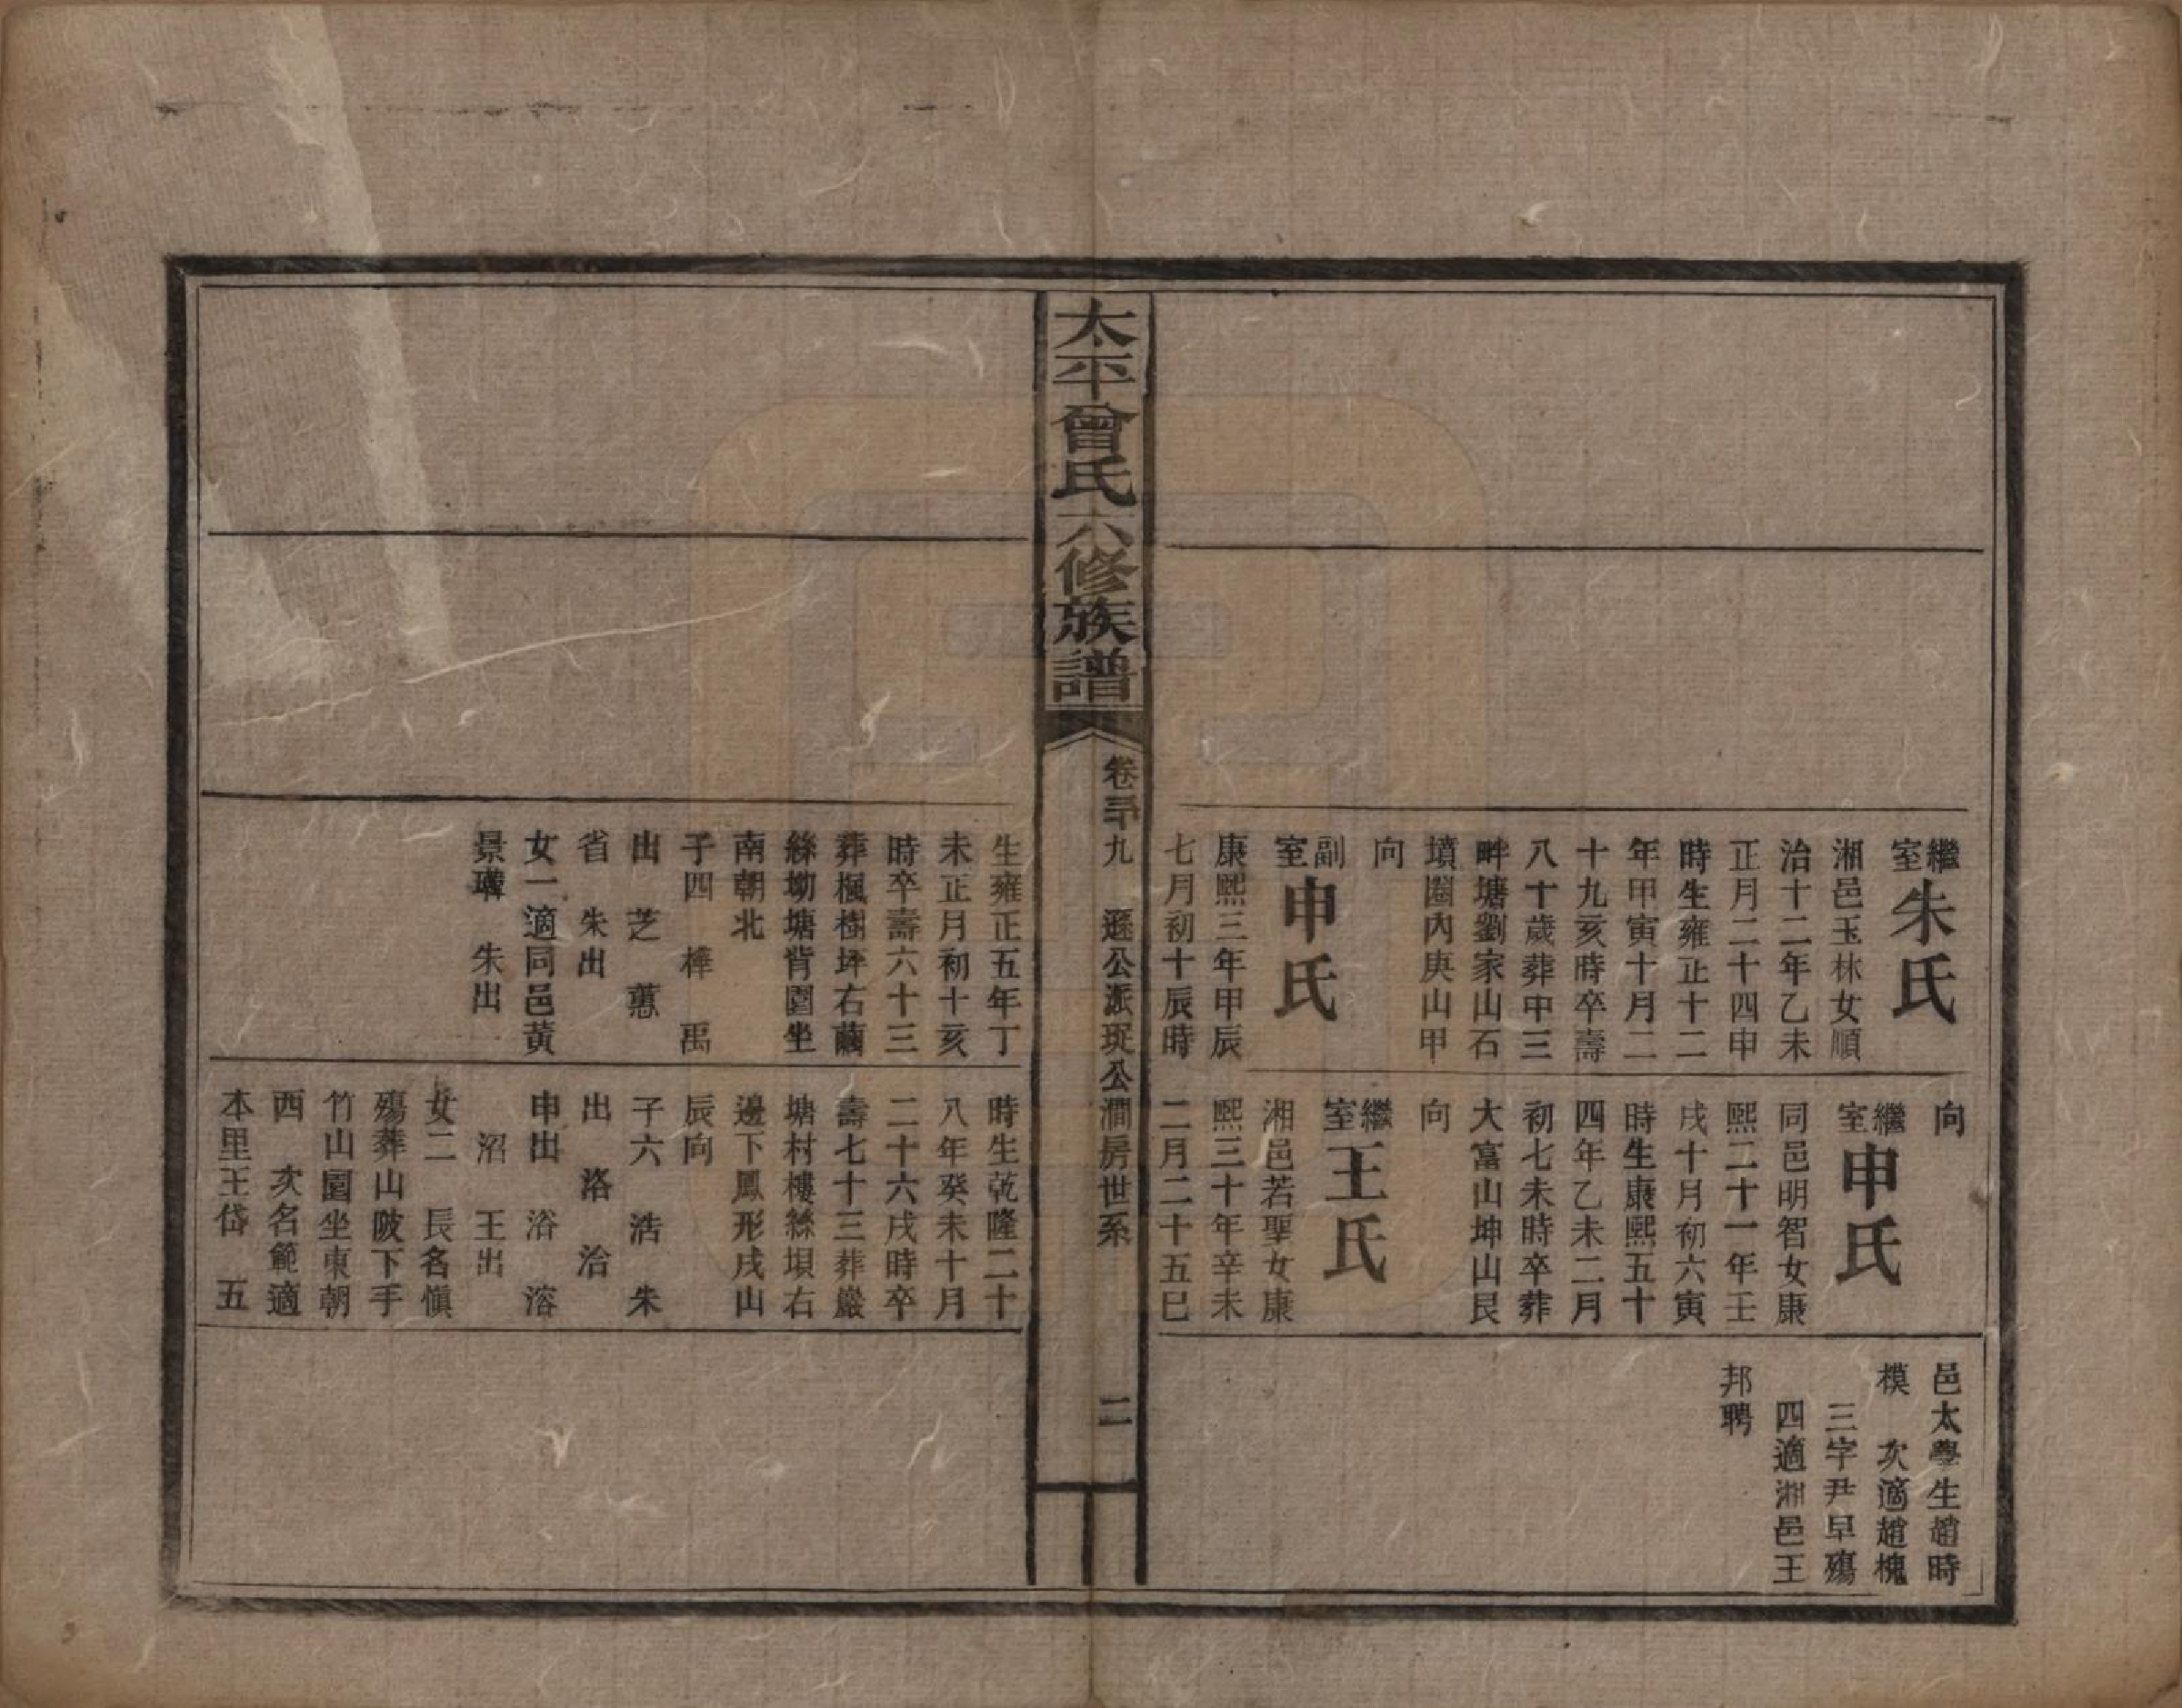 繼室朱氏
湘邑玉林女順
治十二年乙未
正月二十四申
時生雍正十二
年甲寅十月二
十九亥時卒壽
八十歲葬中三
畔塘劉家山石
墳圈內庚山甲
向
副室申氏
康熙三年甲辰
七月初十辰時
向
繼室申氏
同邑明智女康
熙二十一年壬
戌十月初六寅
時生康熙五十
四年乙未二月
初七未時卒葬
大富山坤山艮
向
繼室王氏
湘邑若聖女康
熙三十年辛未
二月二十五巳
邑太學生趙時
模 次適趙槐
三字尹早殤
四適湘邑王
邦聘
太平曾氏六修族譜
卷三十九 遜公派珽公澗房世系 二
生雍正五年丁
未正月初十亥
時卒壽六十三
葬楓樹坪右薾
絲塴塘背園坐
南朝北
子四 樺 禹
出 芝 蕙
省 朱出
女一適同邑黃
景瓘 朱出
時生乾隆二十
八年癸未十月
二十六戌時卒
壽七十三葬巖
塘村樓絲垻右
邊下鳳形戌山
辰向
子六 浩 朱
出 洛 治
申出 浴 溶
沼 王出
女二 長名愼
殤葬山陂下手
竹山園坐東朝
西 次名範適
本里王岱 五